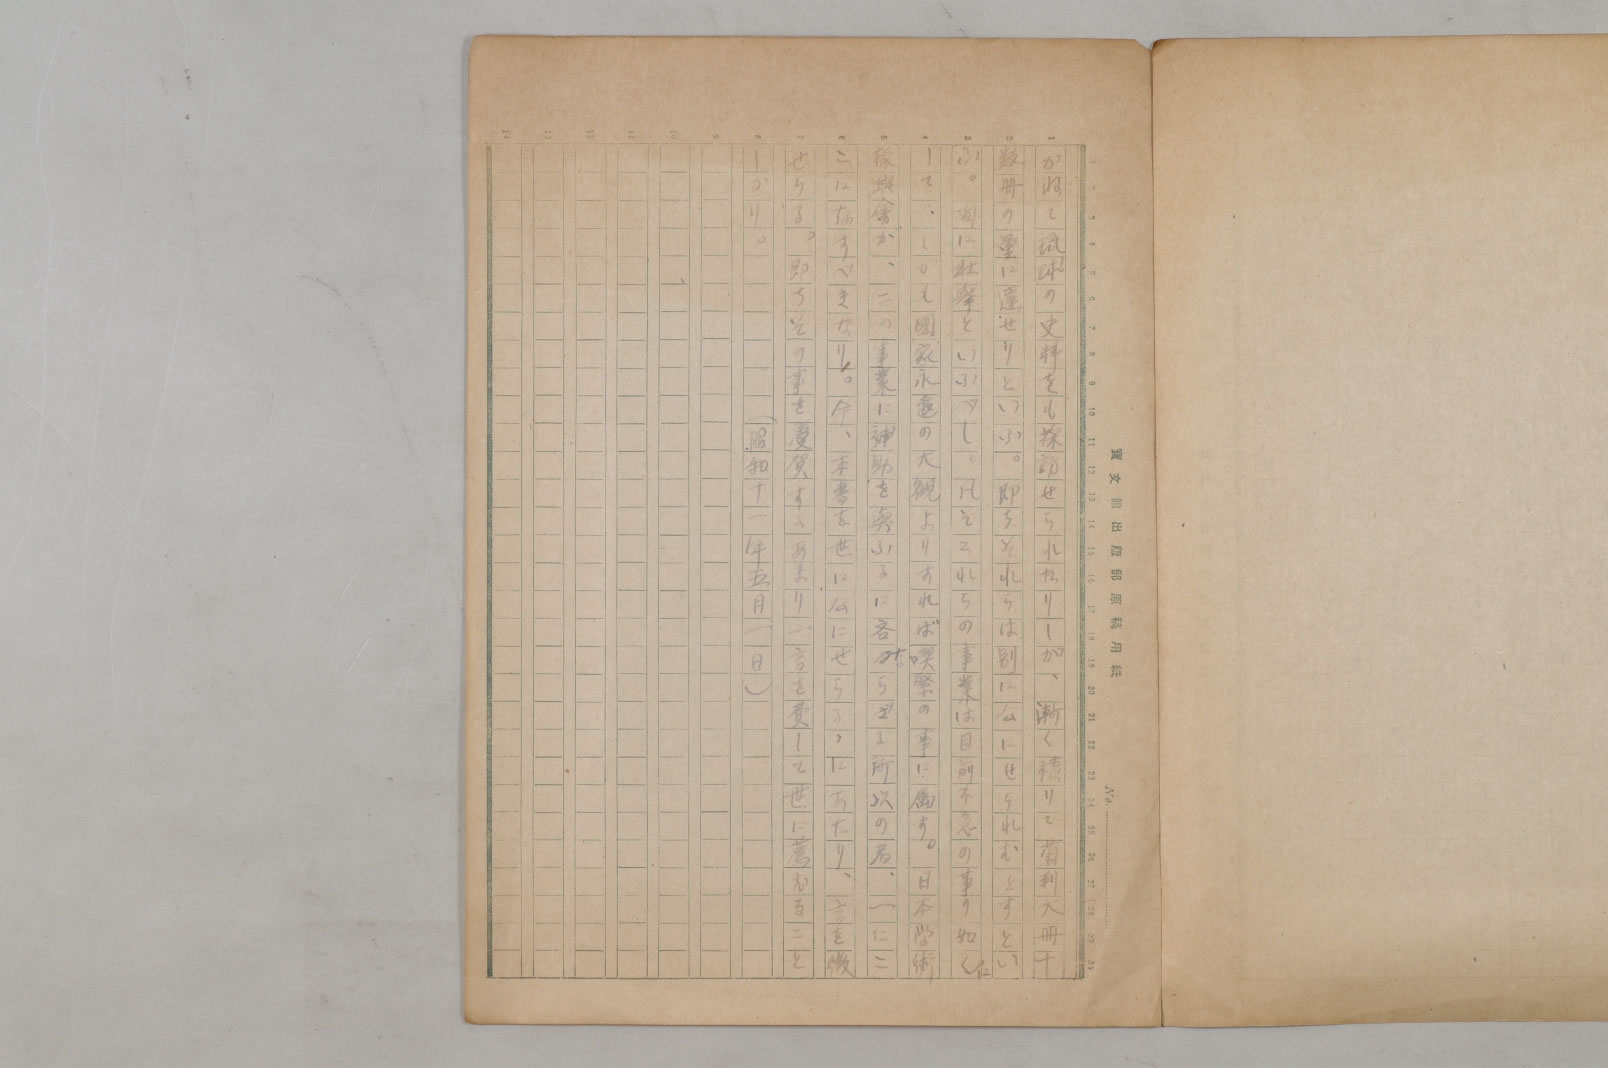 かねて琉球の史料をも採訪せられたりしが、漸く積りて菊判大冊十
数冊の量に達せりといふ。即ちそれらは別に公にせられむとすとい
ふ。洵に壯擧といふべし。凡そこれらの事業は目前不急の事の如くに
して、しかも國家永遠の大観よりすれば喫緊の事に属す。日本学術
振興會が、この事業に補助を與ふるに吝みらざる所以の者、一にこ
こになすべきなり。今、本書を世に公にせらるゝにあたり、言を徴
せらる。即ちその事を慶賀するあまり一言を費して世に薦むること
しかり。
(昭和十一年五月一日)
寶文館出版部原稿用紙
No.